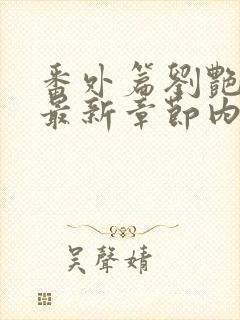 番外篇劉艷
最新章節內
吴聲婧